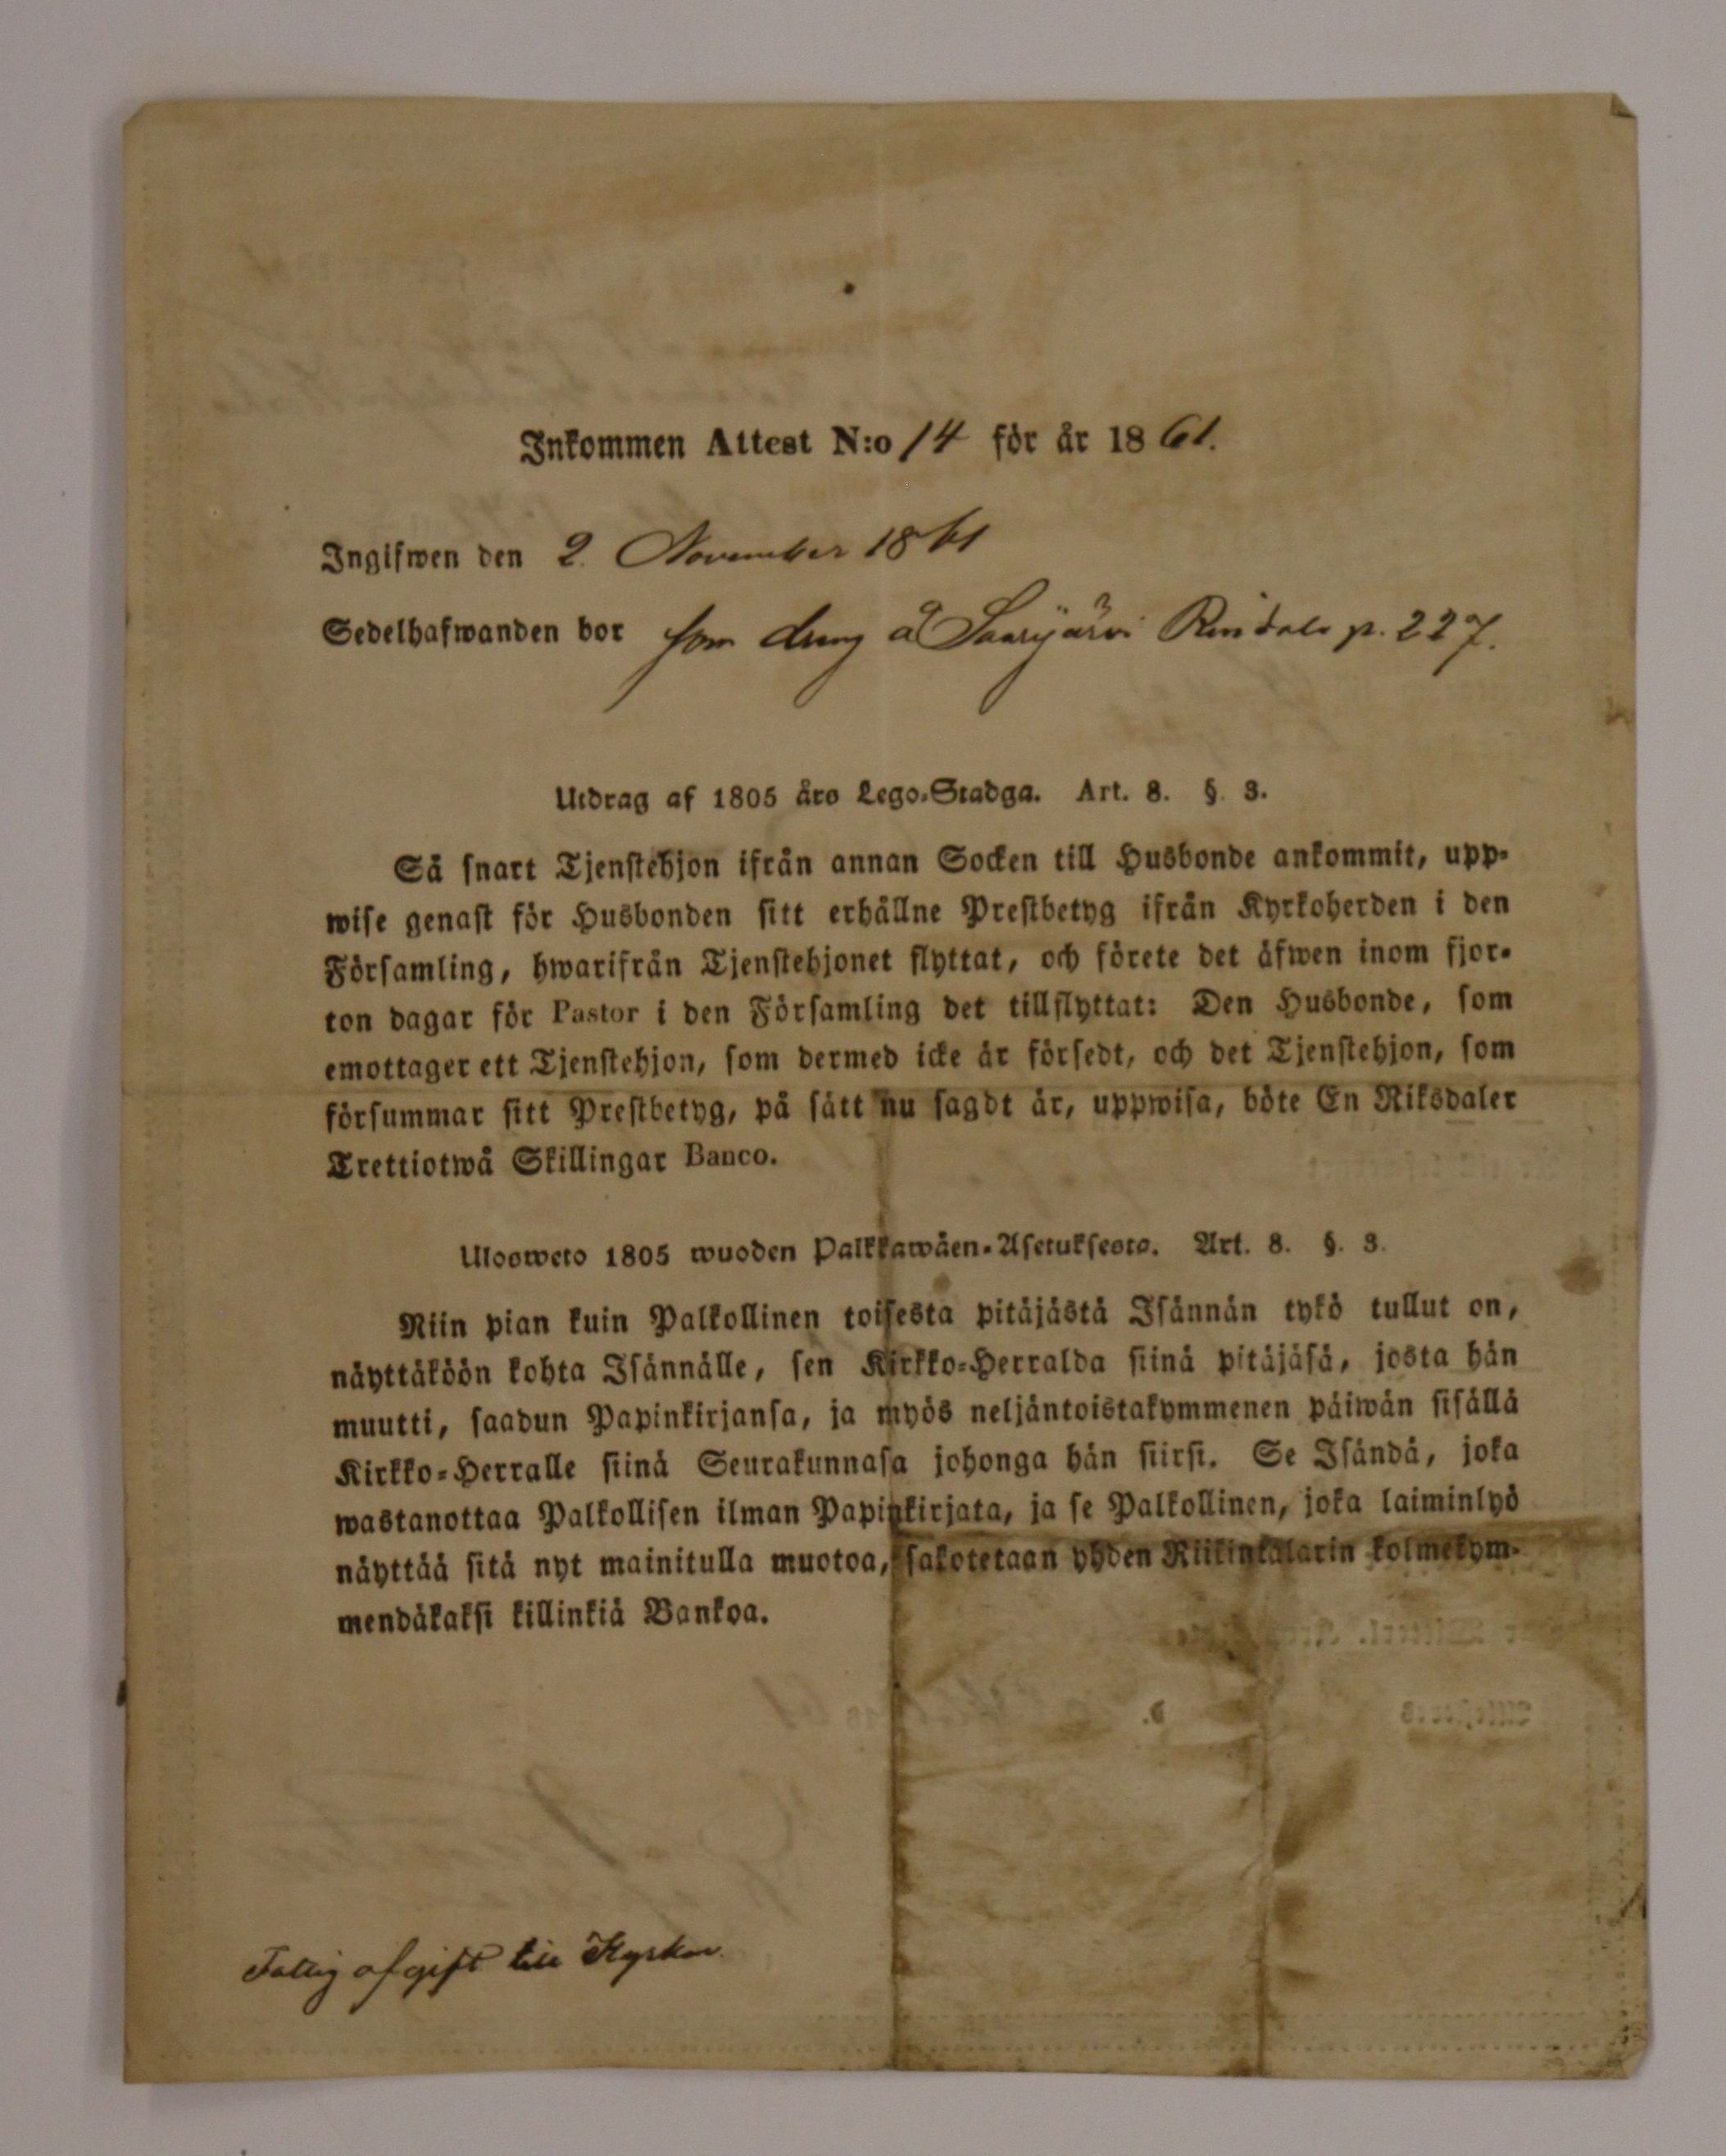 Inkommen Attest N:o 14 för år 1861.
Ingifwen den 2. November 1861
Sedelhafwanden bor som dreng å Saarijärvi p. 227.
Utdrag af 1805 års Lego-Stadga. Art. 8. §. 3.
Så snart Tjenstehjon ifrån annan Socken till Husbonde ankommit, upp-
wise genast för Husbonden sitt erhållne Prestbetyg ifrån Kyrkoherden i den
Församling, hwarifrån Tjenstehjonet flyttat, och förete det äfwen inom fjor-
ton dagar för Pastor i den Församling det tillflyttat: Den Husbonde, som
emottager ett Tjenstehjon, som dermed icke är försedt, och det Tjenstehjon, som
försummar sitt Prestbetyg, på sätt nu sagdt är, uppwisa, böte En Riksdaler
Trettiotwå Skillingar Banco.
Ulosweto 1805 wuoden Palkkawäen-Asetuksesta. Art. 8. §. 3.
Niin pian kuin Palkollinen toisesta pitäjästä Isännän tykö tullut on,
näyttäköön kohta Isännälle, sen Kirkko-Herralda siinä pitäjäsä, josta hän
muutti, saadun Papinkirjansa, ja myös neljäntoistakymmenen päiwän sisällä
Kirkko-Herralle siinä Seurakunnasa johonga hän siirsi. Se Isändä, joka
wastanottaa Palkollisen ilman Papinkirjata, ja se Palkollinen, joka laiminlyö
näyttää sitä nyt mainitulla muotoa, sakotetaan yhden Riikintalarin kolmekym-
mendäkaksi killinkiä Bankoa.
Fattig afgift till Kyrkan.